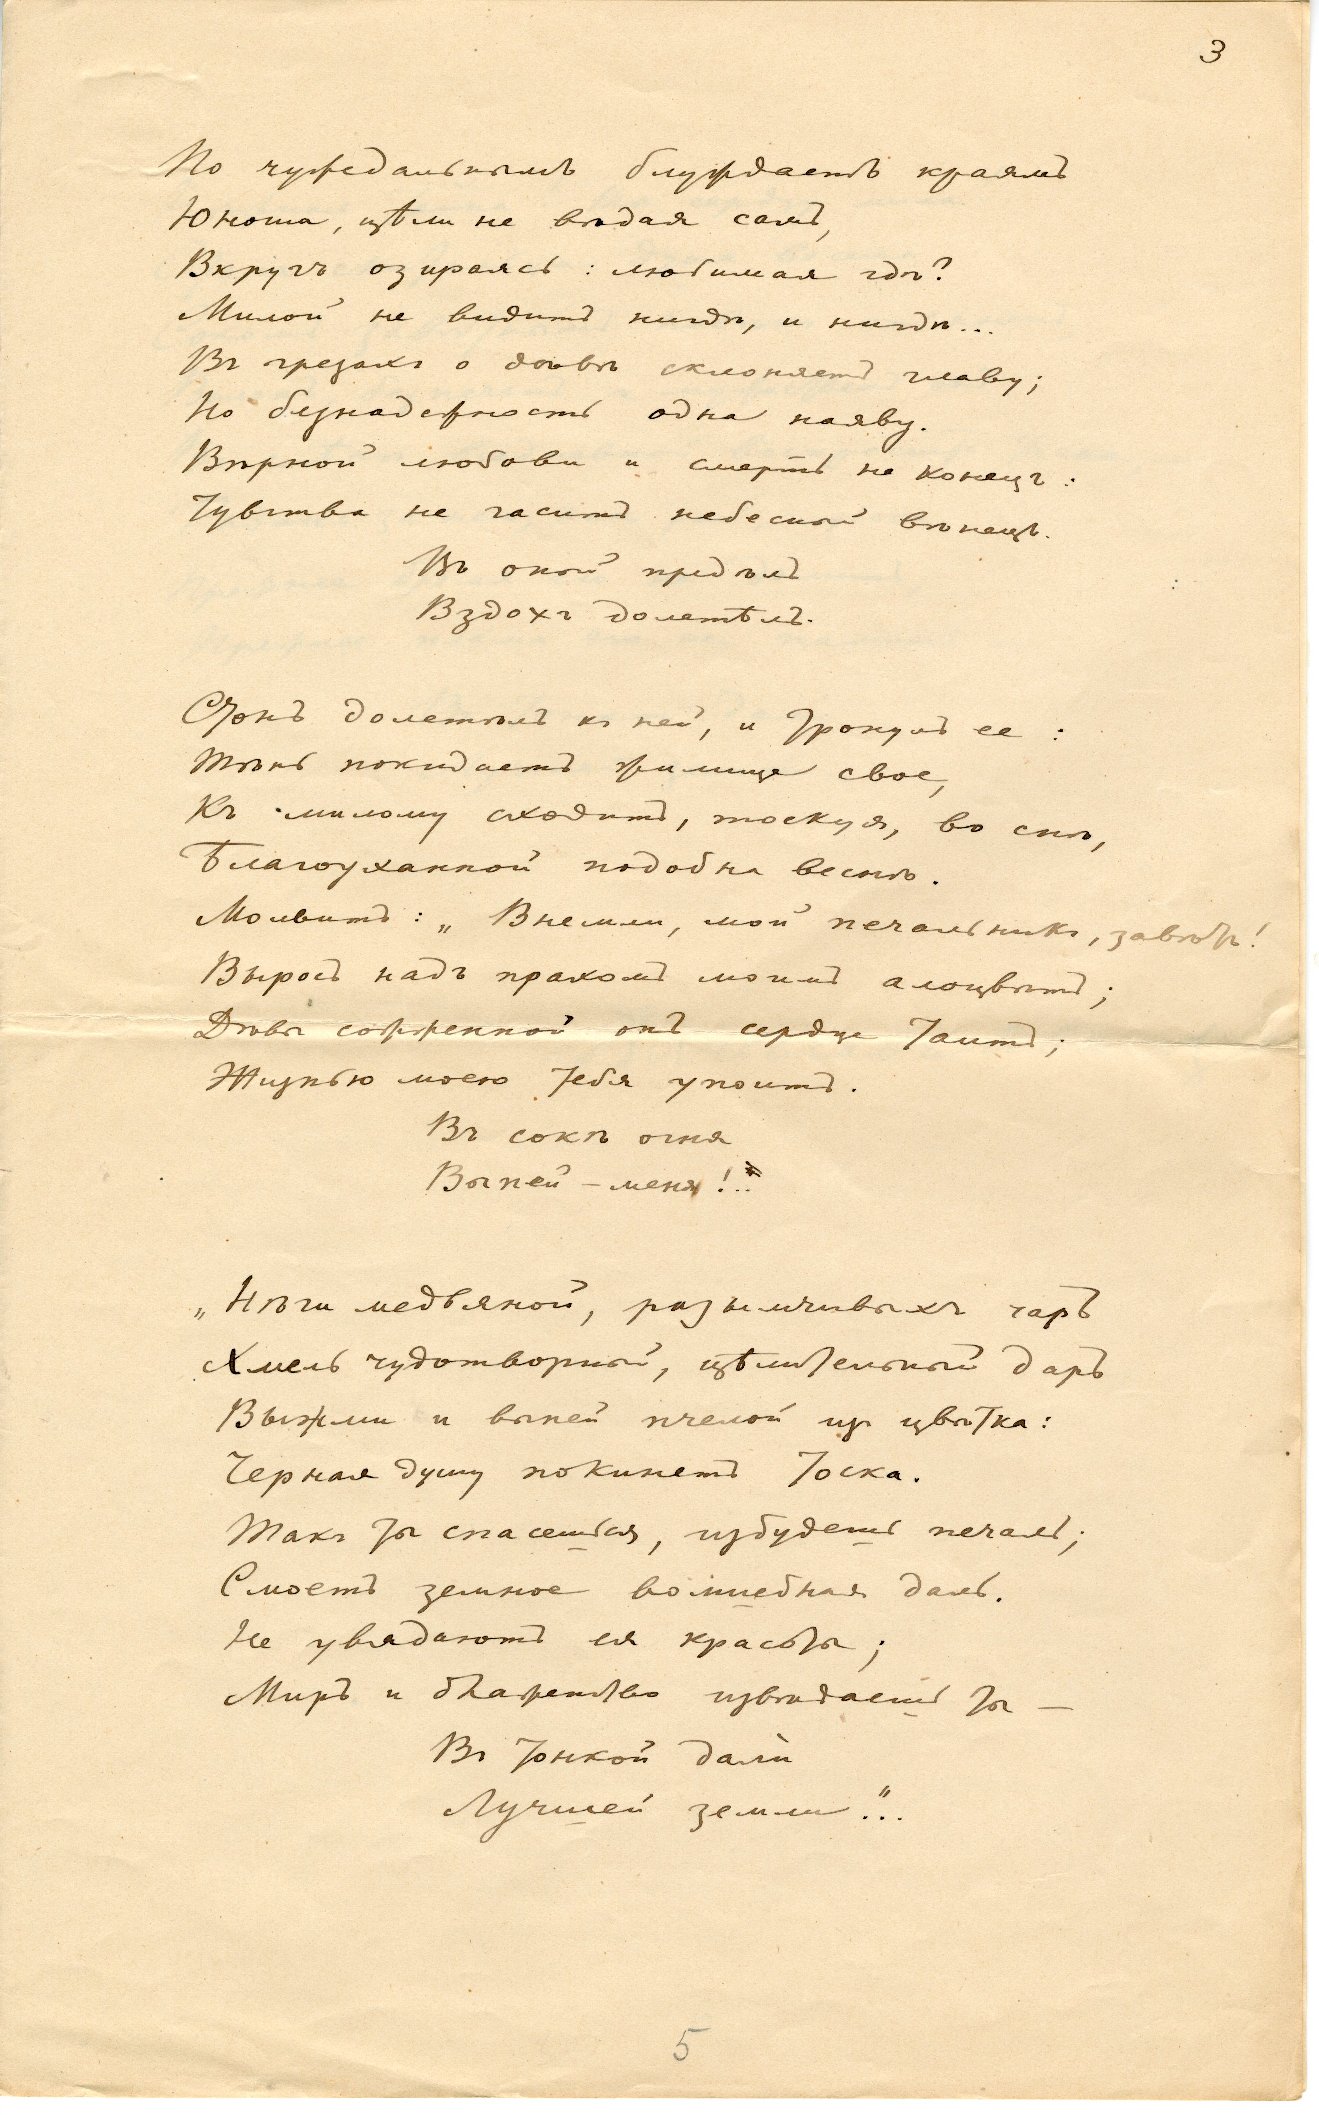 3
По чужедальнымъ блуждаетъ краямъ
Юноша, цѣли не вѣдая самъ,
Вкругъ озираясь: любимая гдѣ?
Милой не видитъ нигдѣ, и нигдѣ...
Въ грезахъ о дѣвѣ склоняетъ главу;
Но безнадежность одна наяву.
Вѣрной любови и смерть не конецъ:
Чувства не гаситъ небесный вѣнецъ.
Въ оный предѣлъ
Вздохъ долетѣлъ.
Стонъ долетѣлъ къ ней, и тронулъ ее:
Тѣнь покидаетъ жилище свое,
Къ милому сходитъ, тоскуя, во снѣ,
Благоуханной подобна веснѣ.
Молвитъ: „Внемли, мой печальникъ, завѣтъ!
Выросъ надъ прахомъ моимъ алоцвѣтъ;
Дѣвы сожженной онъ сердце таитъ;
Жизнью моею тебя упоитъ.
Въ сокѣ огня
Выпей – меня!..
„Нѣги медвяной, разымчивыхъ чаръ
Хмель чудотворный, цѣлительный даръ
Выжми и выпей пчелой изъ цвѣтка:
Черная душу покинетъ тоска.
Такъ ты спасешься, избудешь печаль;
Смоетъ земное волшебная даль.
Не увядаютъ ея красоты;
Миръ и блаженство извѣдаешь ты –
Въ тонкой дали
Лучшей земли“...
5